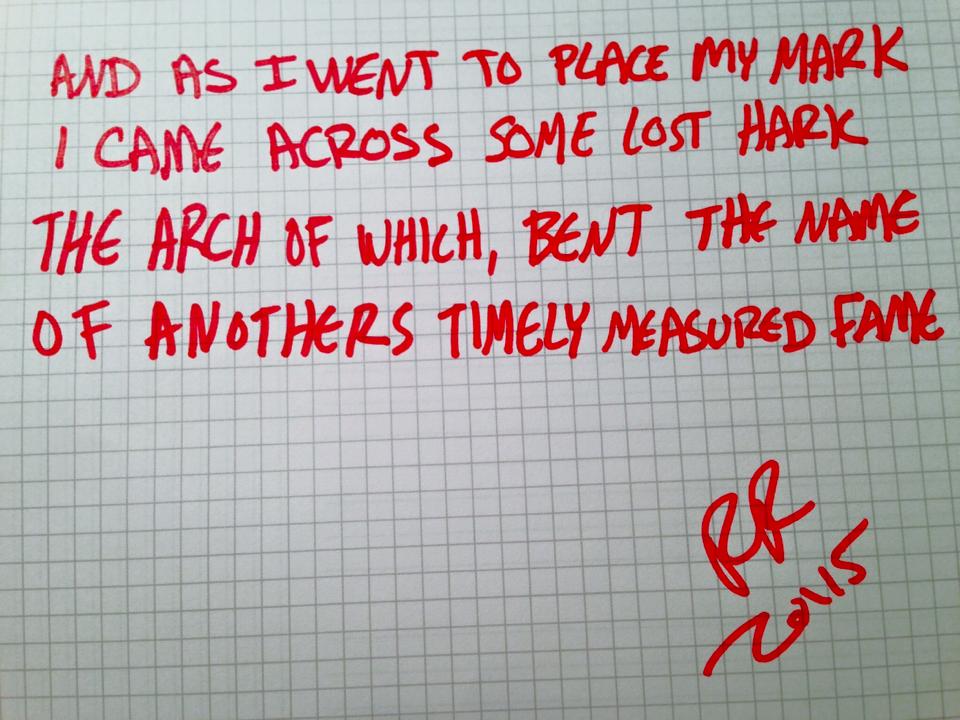 AND AS I WENT TO PLACE MY MARK
I CAME ACROSS SOME LOST HARK
THE ARCH OF WHICH, BENT THE NAME
OF ANOTHERS TIMELY MEASURED FAME
RR
2015